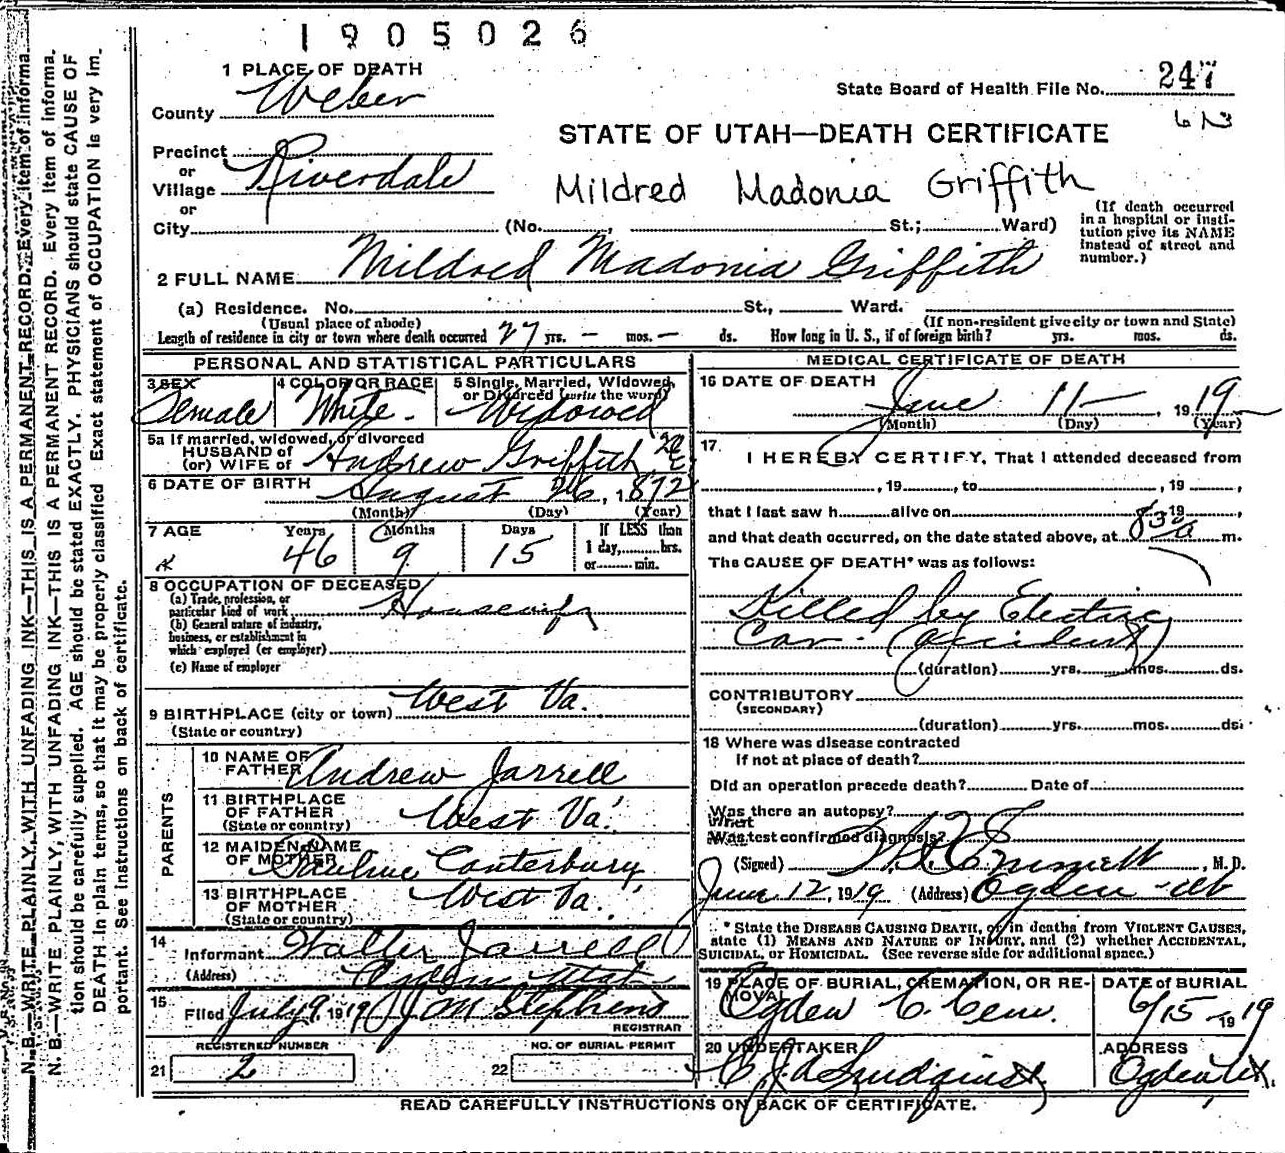 1905026
1 PLACE OF DEATH
County Weber
State Board of Health File No. 247
STATE OF UTAH—DEATH CERTIFICATE
Precinct
or
Village Riverdale
or
Mildred Madonia Griffith
City (No. , St.; Ward)
(If death occurred
in a hospital or insti-
tution give its NAME
instead of street and
number.)
2 FULL NAME Mildred Madonia Griffith
(a) Residence. No. St., Ward.
(Usual place of abode) (If non-resident give city or town and State)
Length of residence in city or town where death occurred 27 yrs. — mos. — ds. How long in U. S., if of foreign birth? yrs. mos. ds.
PERSONAL AND STATISTICAL PARTICULARS
3 SEX Female
4 COLOR OR RACE White
5 Single, Married, Widowed,
or Divorced (write the word)
Widowed
5a If married, widowed, or divorced
HUSBAND of
(or) WIFE of Andrew Griffith
6 DATE OF BIRTH August 26, 1872
(Month) (Day) (Year)
7 AGE Years Months Days If LESS than
46 9 15 1 day, hrs.
or min.
8 OCCUPATION OF DECEASED
(a) Trade, profession, or
particular kind of work Housewife
(b) General nature of industry,
business, or establishment in
which employed (or employer)
(c) Name of employer
9 BIRTHPLACE (city or town) West Va.
(State or country)
PARENTS
10 NAME OF
FATHER Andrew Jarrell
11 BIRTHPLACE
OF FATHER West Va.
(State or country)
12 MAIDEN NAME
OF MOTHER Pauline Canterbury
13 BIRTHPLACE
OF MOTHER West Va.
(State or country)
14
Informant Walter Jarrell
(Address) Ogden Utah
15
Filed July 9, 1919 J M Stephens
REGISTRAR
REGISTERED NUMBER NO. OF BURIAL PERMIT
21 2 22
MEDICAL CERTIFICATE OF DEATH
16 DATE OF DEATH
June 11 — , 1919
(Month) (Day) (Year)
17.
I HEREBY CERTIFY, That I attended deceased from
, 19 , to , 19 ,
that I last saw h alive on , 19 ,
and that death occurred, on the date stated above, at 830 a m.
The CAUSE OF DEATH* was as follows:
Killed by Electric
Car. (accident)
(duration) yrs. mos. ds.
CONTRIBUTORY
(SECONDARY)
(duration) yrs. mos. ds.
18 Where was disease contracted
If not at place of death?
Did an operation precede death? Date of
Was there an autopsy?
What
Was test confirmed diagnosis?
(Signed) Emmett, M. D.
June 12, 1919 (Address) Ogden Ut
* State the DISEASE CAUSING DEATH, or in deaths from VIOLENT CAUSES,
state (1) MEANS AND NATURE OF INJURY, and (2) whether ACCIDENTAL,
SUICIDAL, or HOMICIDAL. (See reverse side for additional space.)
19 PLACE OF BURIAL, CREMATION, OR RE-
MOVAL
Ogden C. Cem.
DATE of BURIAL
6/15 1919
20 UNDERTAKER
C. J. A. Lindquist
ADDRESS
Ogden Ut.
READ CAREFULLY INSTRUCTIONS ON BACK OF CERTIFICATE.
N. B.—WRITE PLAINLY, WITH UNFADING INK—THIS IS A PERMANENT RECORD. Every item of informa
N. B.—WRITE PLAINLY, WITH UNFADING INK—THIS IS A PERMANENT RECORD. Every item of informa.
tion should be carefully supplied. AGE should be stated EXACTLY. PHYSICIANS should state CAUSE OF
DEATH in plain terms, so that it may be properly classified. Exact statement of OCCUPATION is very im.
portant. See instructions on back of certificate.